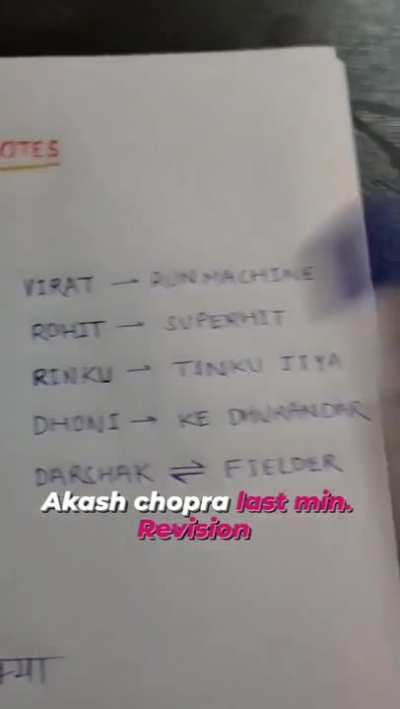 NOTES
VIRAT → RUN MACHINE
ROHIT → SUPERHIT
RINKU → TINKU JIYA
DHONI → KE DHURANDAR
DARSHAK ⇌ FIELDER
Akash chopra last min.
Revision